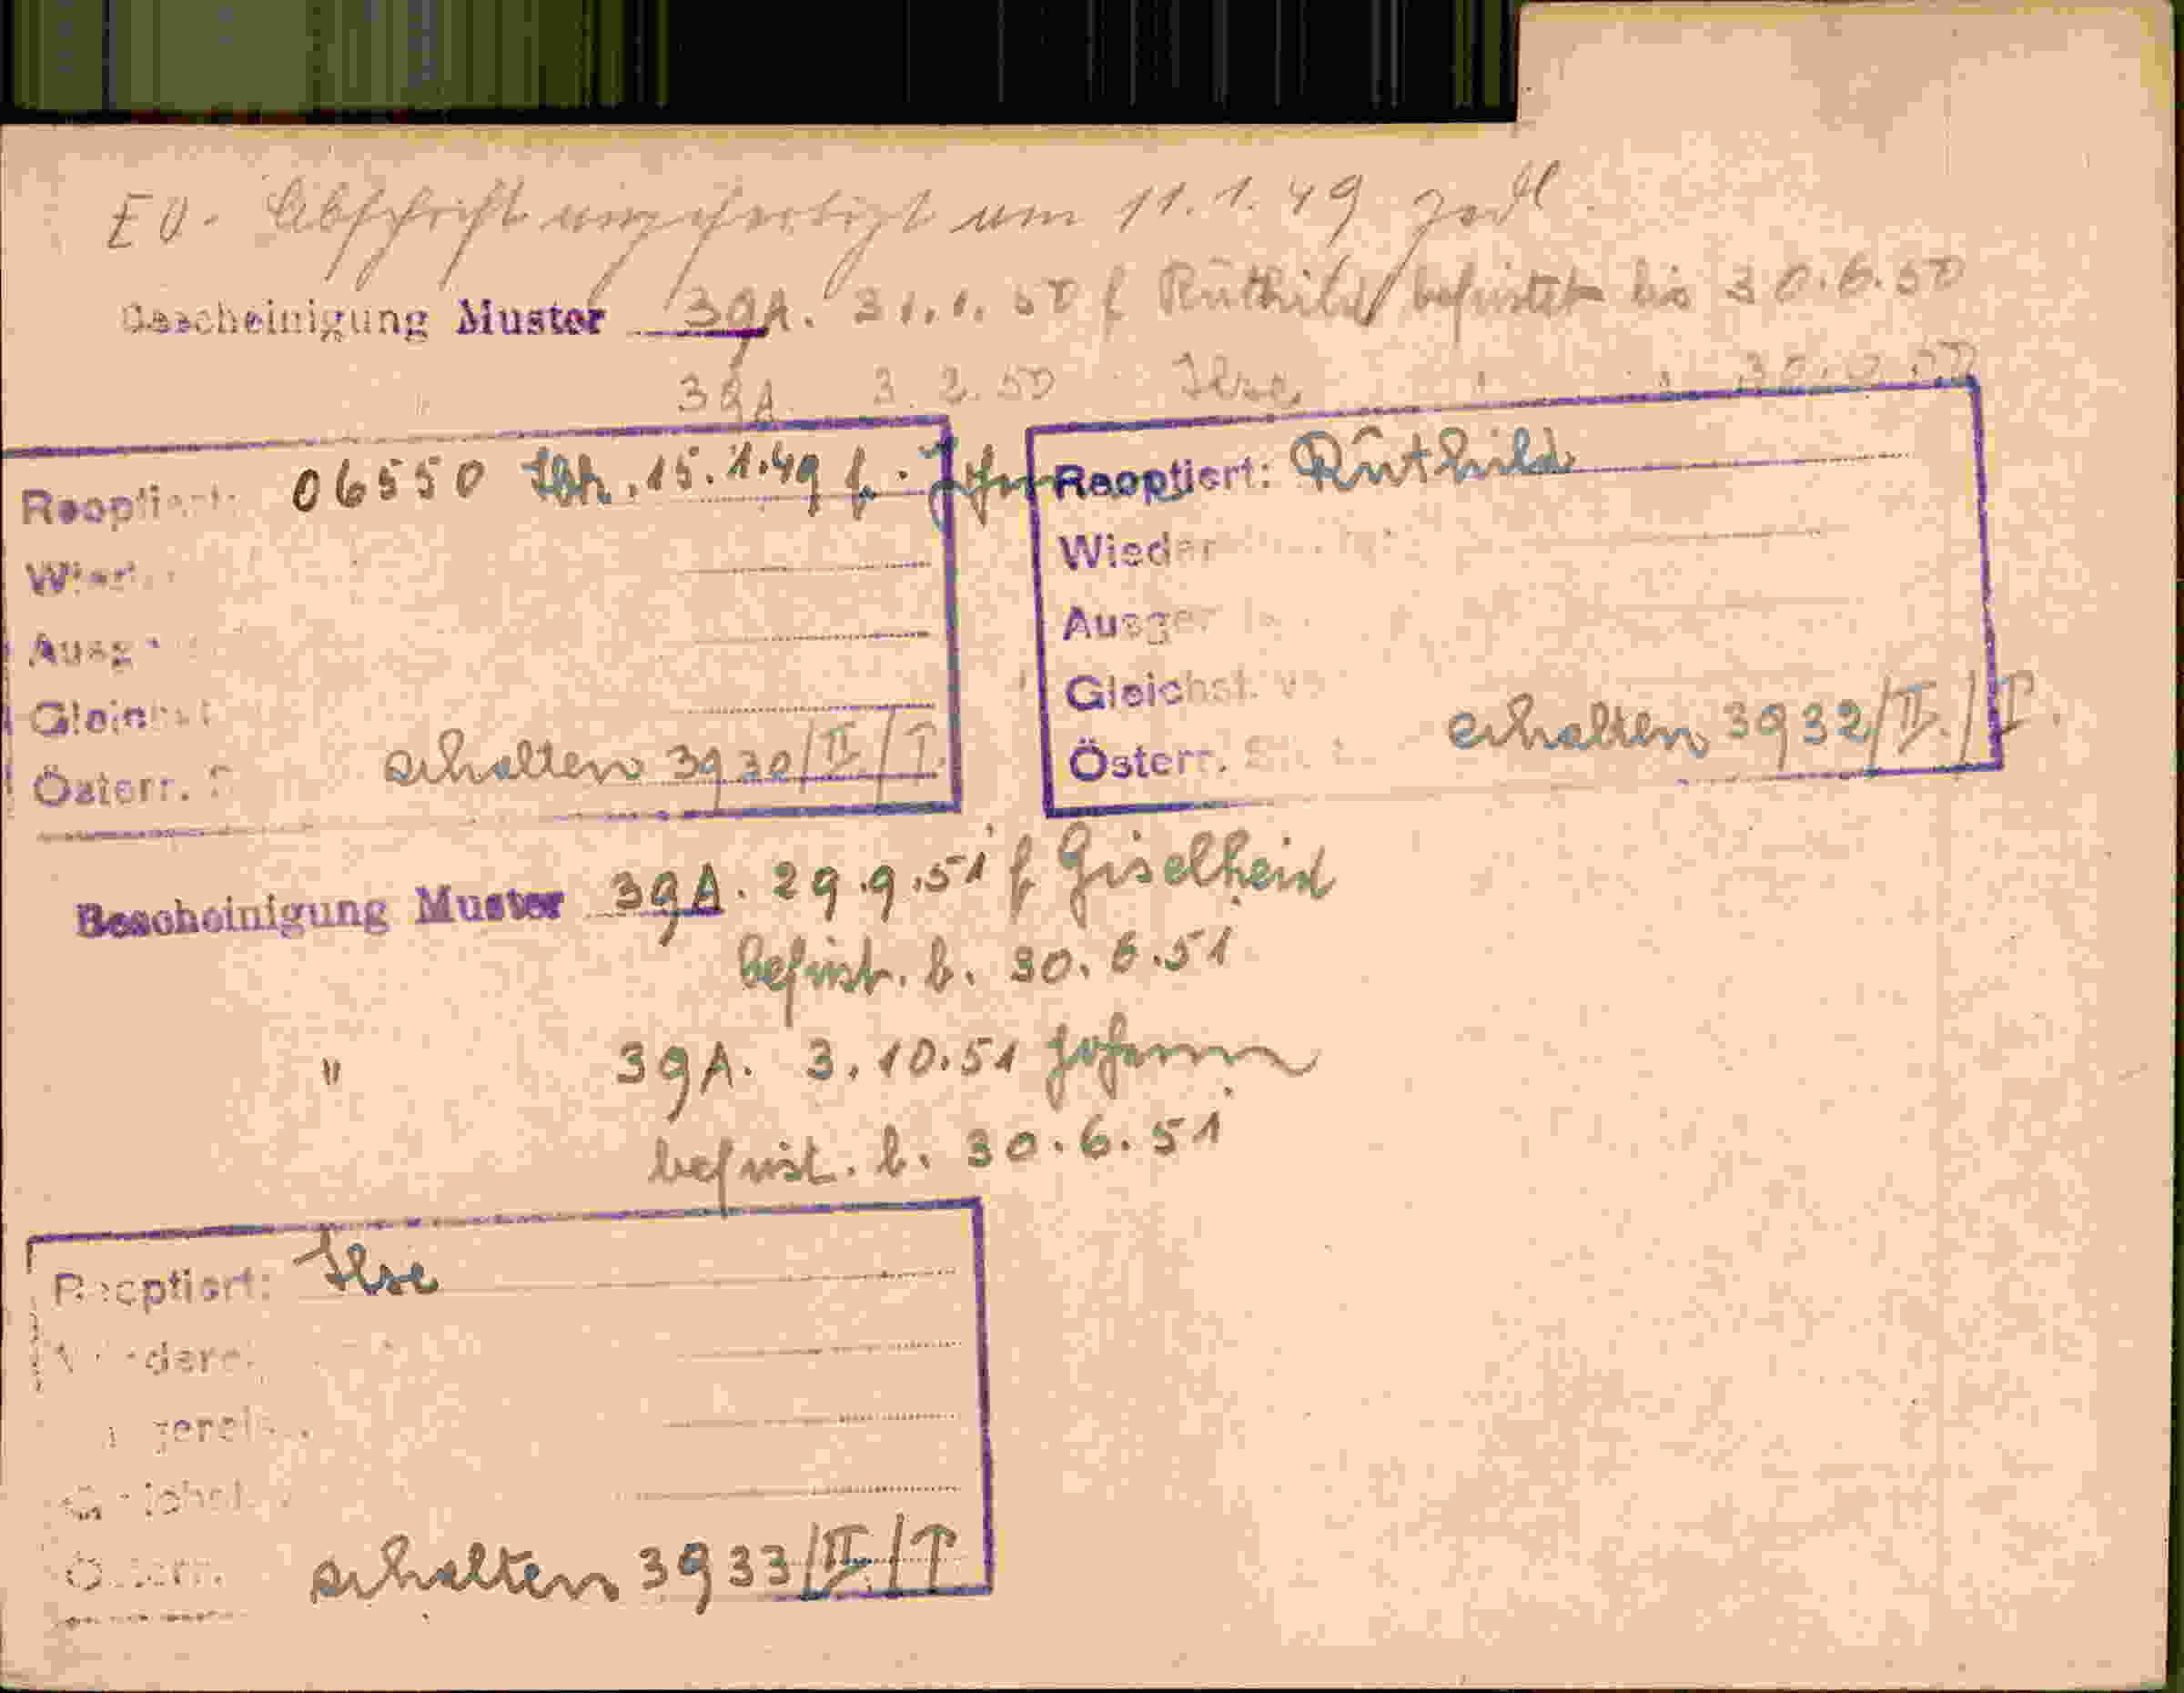 EU. Abschrift angefertigt am 11.1.49
Bescheinigung Muster 39A. 31.1.50 f Rüthild befristet bis 30.6.50
39A 3.2.50 Ilse
Reoptiert: 06550 15.1.49 f. Johann
erhalten 3930/II/I
Österr.
Reoptiert: Rüthild
Wieder
Ausger
Gleichst.
Österr.
erhalten 3932/II./I.
Bescheinigung Muster 39A. 29.9.51 f Giselheid
befrist. b. 30.6.51
" 39A. 3.10.51 Johann
befrist. b. 30.6.51
Reoptiert: Ilse
erhalten 3933/II./I